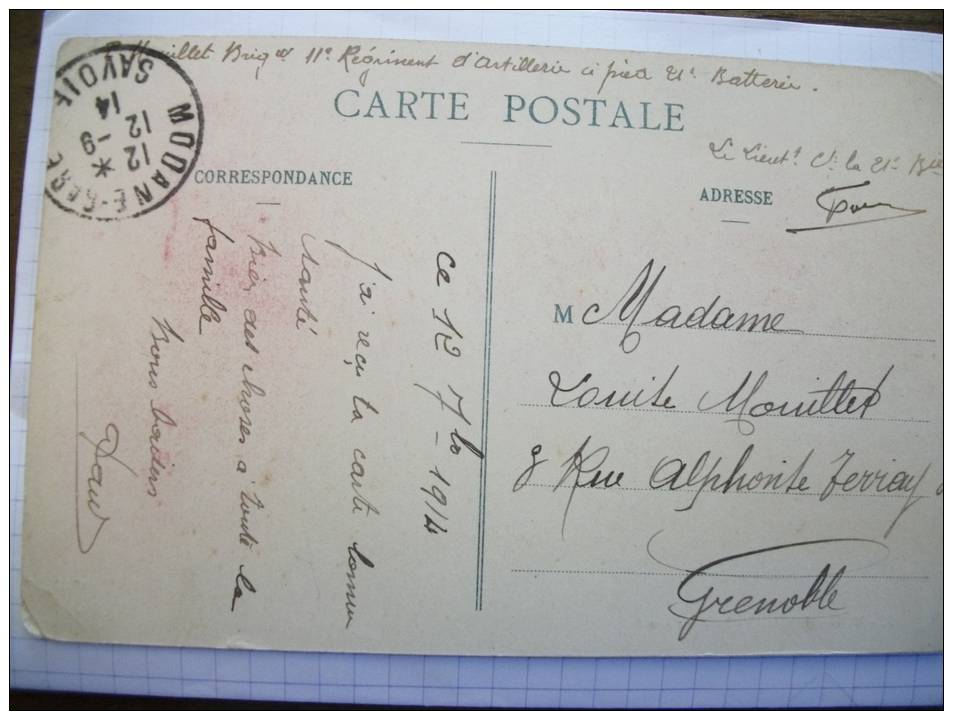 Mouillet Brig^er 11^e Régiment d'artillerie à pied 21^e Batterie.
CARTE POSTALE
MODANE-GARE
SAVOIE
*
12 -9
12 14
Le Lieut^t C^t la 21^e B^ie
CORRESPONDANCE
ADRESSE
ce 12 7^bre 1914
j'ai reçu ta carte bonne
santé
bien des choses à toute la
famille
bons baisers
M Madame
Louise Mouillet
8 Rue Alphonse Terray
Grenoble